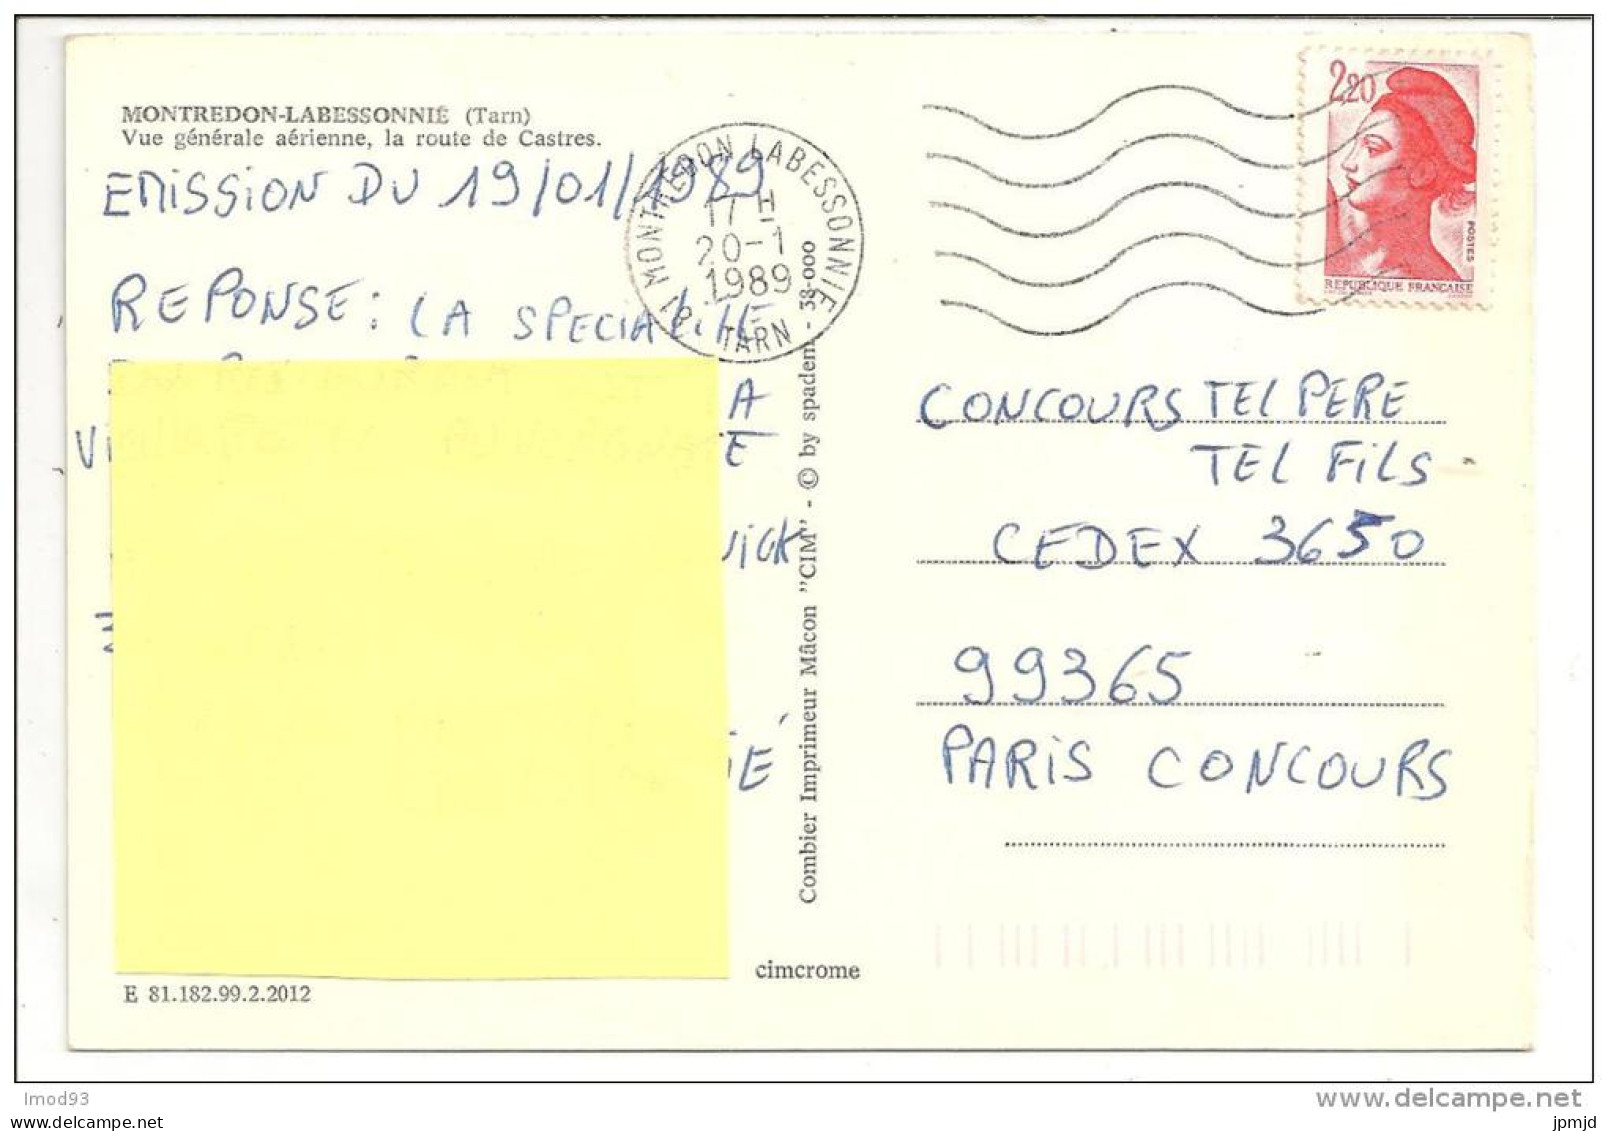 MONTREDON-LABESSONNIÉ (Tarn)
Vue générale aérienne, la route de Castres.
EMISSION DU 19/01/1989
REPONSE : LA SPECIALITE
A
E
É
81 MONTREDON LABESSONNIE
17 H
20-1
1989
TARN
2,20
POSTES
REPUBLIQUE FRANÇAISE
CONCOURS TEL PERE
TEL FILS
CEDEX 3650
99365
PARIS CONCOURS
Combier Imprimeur Mâcon "CIM" - © by spadem - 38-000
cimcrome
E 81.182.99.2.2012
lmod93
www.delcampe.net
jpmjd